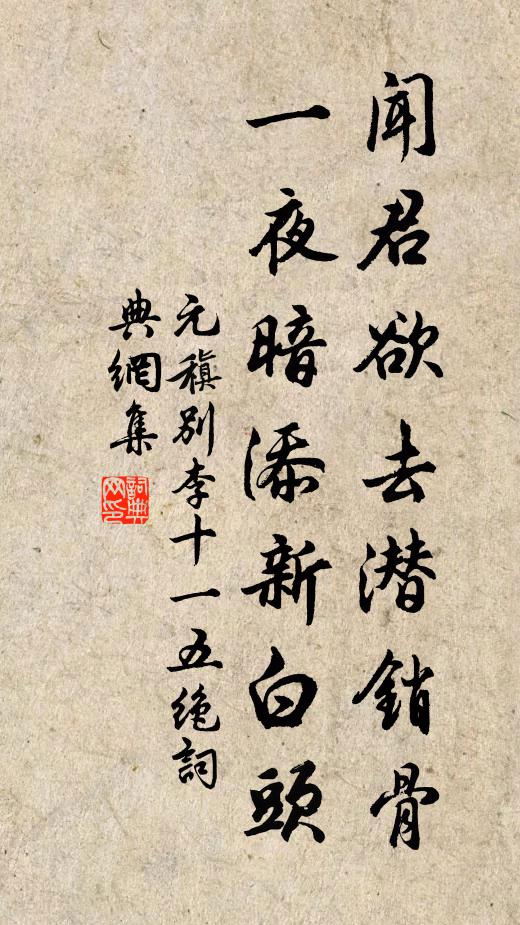 闻君欲去潜銷骨
一夜暗添新白頭
元稹別李十一五绝詞
典網集
詞典网印